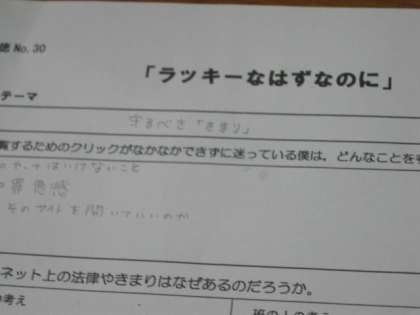 No. 30
「ラッキーなはずなのに」
テーマ
守るべき「きまり」
覧するためのクリックがなかなかできずに迷っている僕は,どんなことを考
はいけないこと
罪悪感
そのサイトを開いていいのか
ネット上の法律やきまりはなぜあるのだろうか。
の考え
班の人の考え